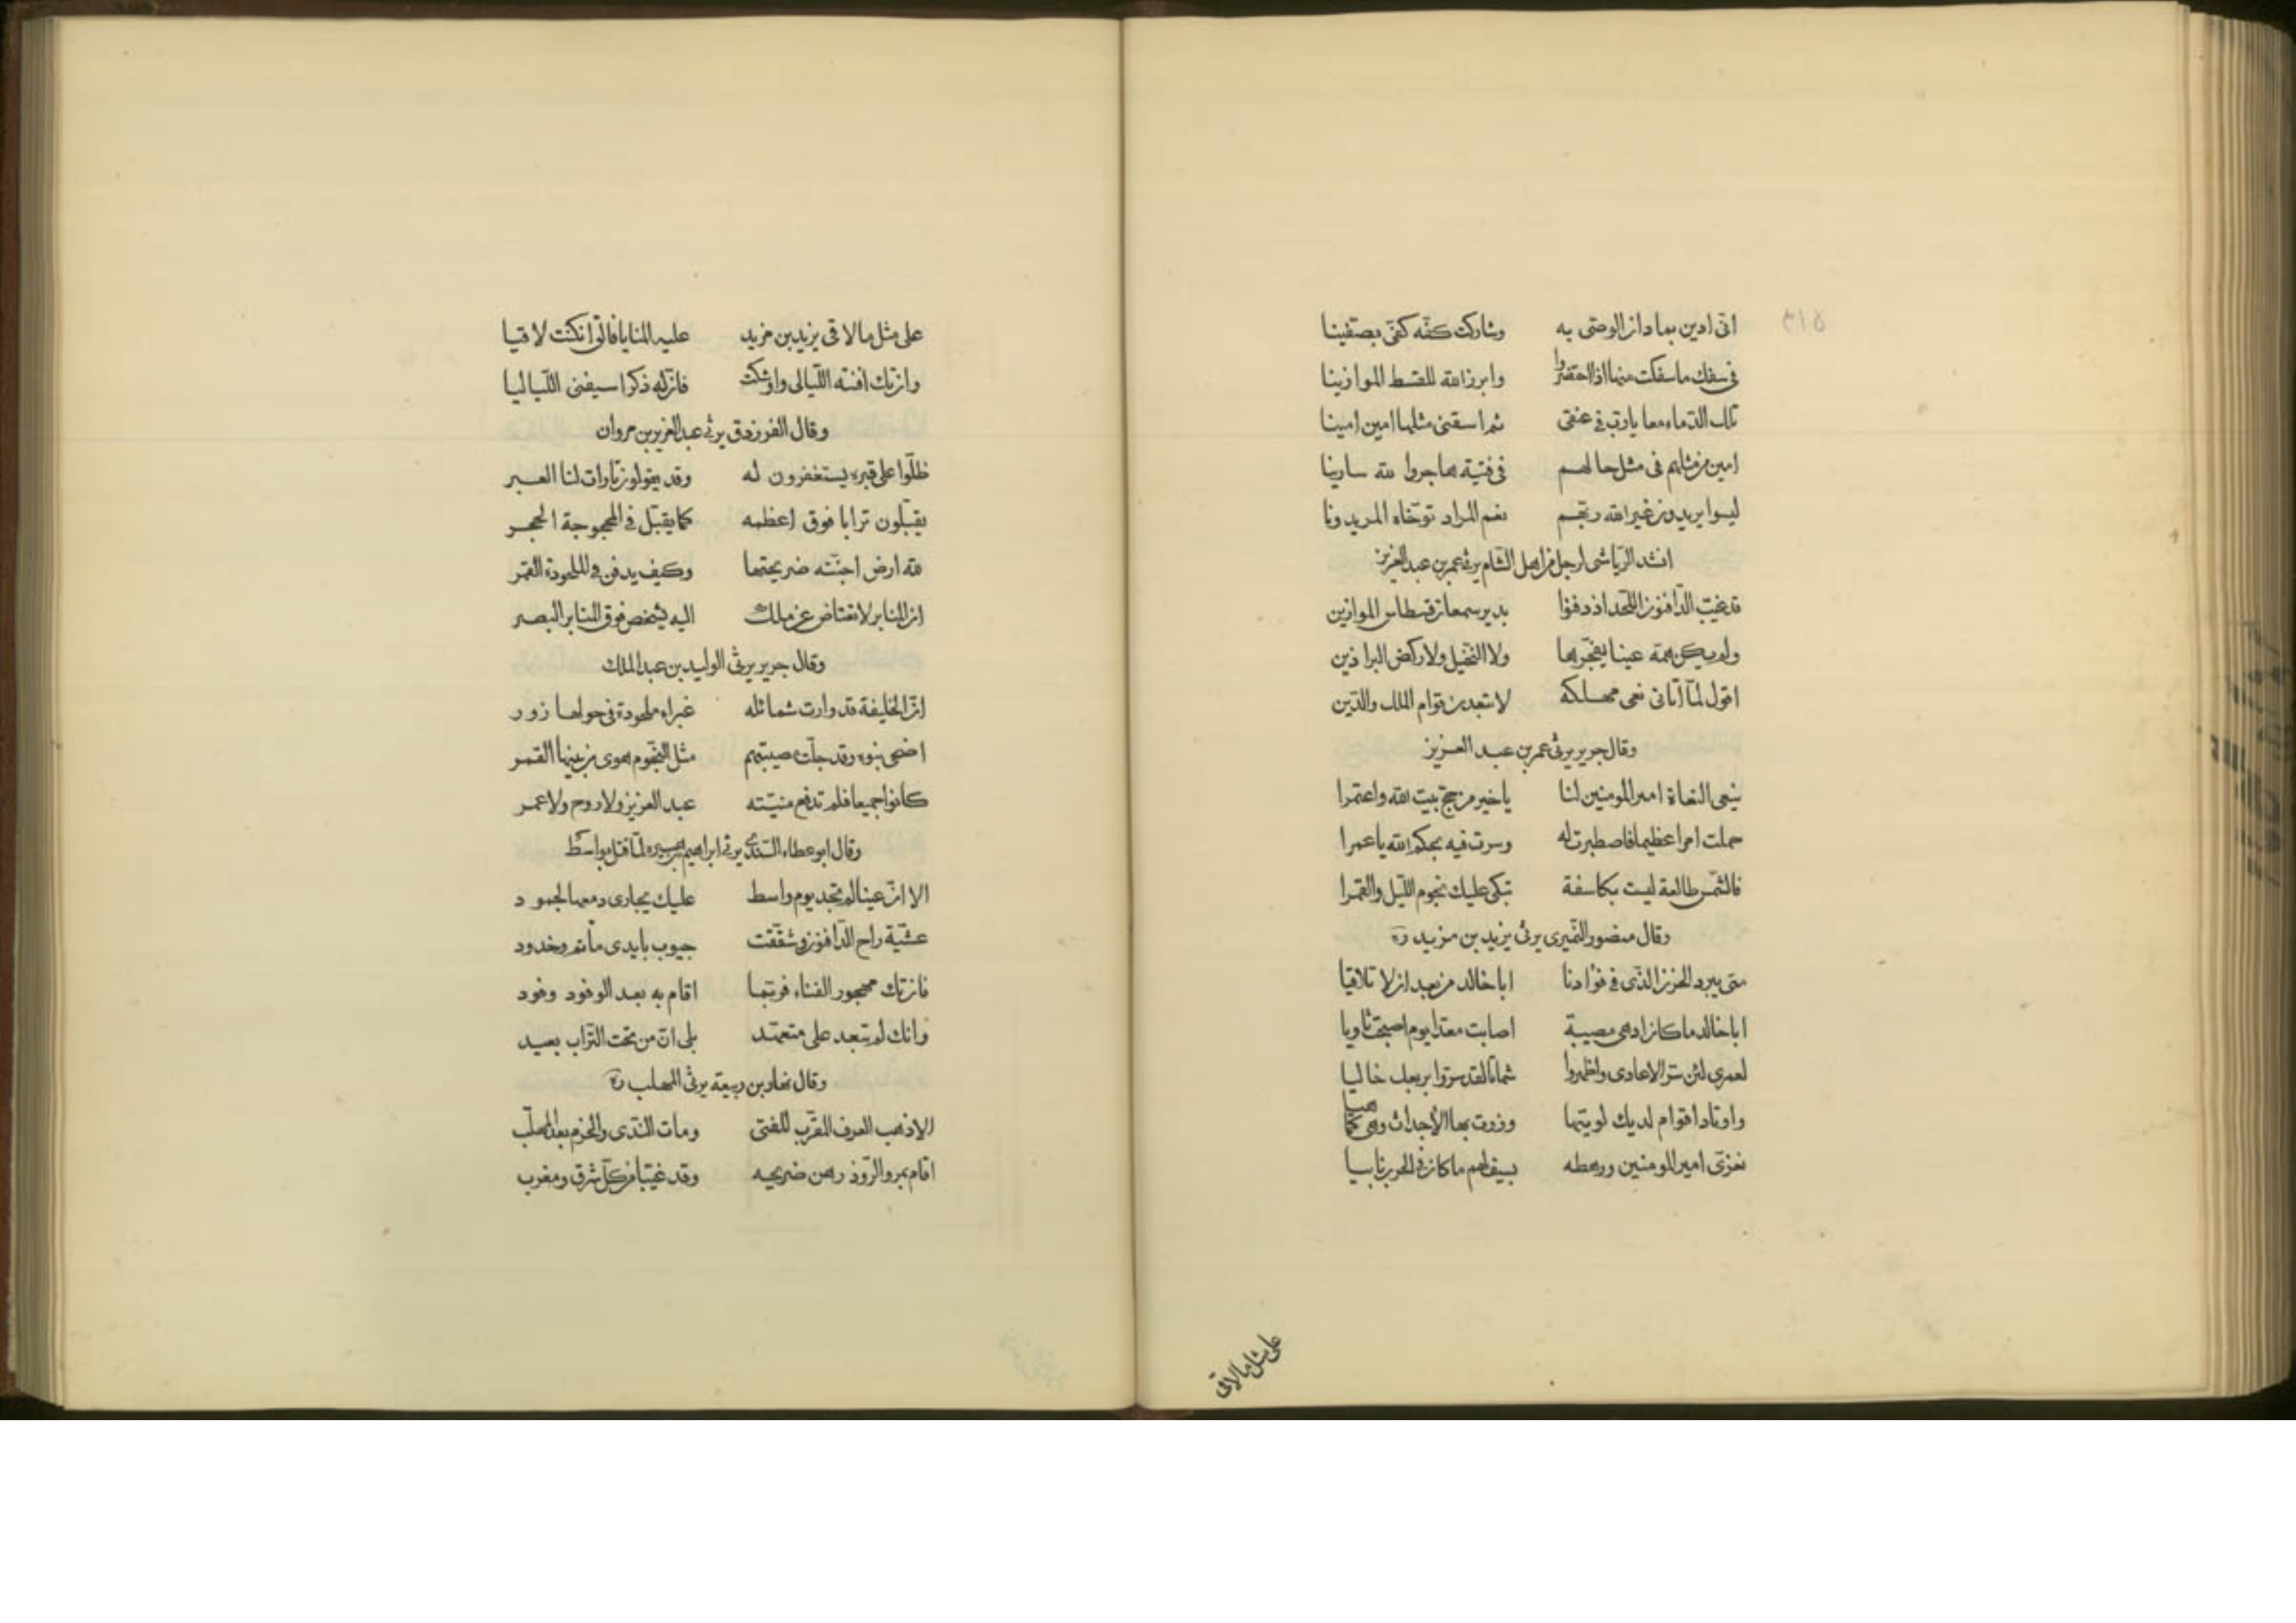 ٣١٥
انّى ادين بما دان الوصّى به وشاركت كفّه كفّى بصفّينا
فى سفك ما سفكت منها اذا احتضروا وابرز الله للقسط الموازينا
تلك الدّماء معا يا ربّ فى عنقى ثم اسقنى مثلها امين امينا
امين من مثلهم فى مثل حالهم فى فتية هاجروا لله سارينا
ليسوا يريدون غير الله ربّهم نعم المراد توخّاه المريدونا
انشد الرياشى لرجل من اهل الشّام يرثى عمر بن عبد العزيز
قد غيّب الدّافنون اللّحد اذ دفنوا بدير سمعان قسطاس الموازين
ولم يكن همّه عينا يفجّرها ولا النّخيل ولا ركض البراذين
اقول لمّا اتانى نعى مهلكه لا تبعدن قوام الملك والدّين
وقال جرير يرثى عمر بن عبد العزيز
ينعى النعاة امير المومنين لنا يا خير من حج بيت الله واعتمرا
حملت امرا عظيما فاصطبرت له وسرت فيه بحكم الله يا عمرا
فالشّمس طالعة ليست بكاسفة تبكى عليك نجوم اللّيل والقمرا
وقال منصور النّميرى يرثى يزيد بن مزيد
متى يبرد الحزن الذّى فى فوادنا ابا خالد من بعد ان لا تلاقيا
ابا خالد ما كان ادهى مصيبة اصابت معدّا يوم اصبحت ثاويا
لعمرى لئن سرّ الاعادى واظهروا شماتا لقد سرّوا بربعك خاليا
واوتاد اقوام لديك لويتها وزرت بها الأجداث وهى كما هيا
نعزّى امير المومنين ورهطه بسيف لهم ما كان فى الحرب نابيا
على مثل ما لاقى
على مثل ما لاقى يزيد بن مزيد عليه المنايا فالق ان كنت لاقيا
وان تك افنته اللّيالى واوشكت فان له ذكرا سيفنى اللّياليا
وقال الفرزدق يرثى عبد العزيز بن مروان
ظلّوا على قبره يستغفرون له وقد يقولون تارات لنا العبر
يقبّلون ترابا فوق اعظمه كما يقبّل فى المحجوجة الحجر
لله ارض اجنّته ضريحتها وكيف يدفن فى الملحودة القمر
ان المنابر لا تعتاض عن ملك اليه يشخص فوق المنابر البصر
وقال جرير يرثى الوليد بن عبد الملك
انّ الخليفة قد وارت شمائله غبراء ملحودة فى حولها زور
اضحى بنوه وقد جلّت مصيبتهم مثل النّجوم هوى من بينها القمر
كانوا جميعا فلم تدفع منيّته عبد العزيز ولا روح ولا عمر
وقال ابو عطاء السّندى يرثى ابراهيم بن هبيره لمّا قتل بواسط
الا انّ عينا لم تجد يوم واسط عليك بجارى دمعها لجمود
عشيّة راح الدّافنون وشقّقت جيوب بايدى ماتم وخدود
فان تك مهجور الفناء فربّما اقام به بعد الوفود وفود
وانك لم تبعد على متعهّد بلى انّ من تحت التّراب بعيد
وقال نهار بن ربيعه يرثى المهلب
الا ذهب العرف المقرّب للفتى ومات النّدى والحزم بعد المهلّب
اقام بمرو الرّوذ رهن ضريحه وقد غيّبا من كلّ شرق ومغرب